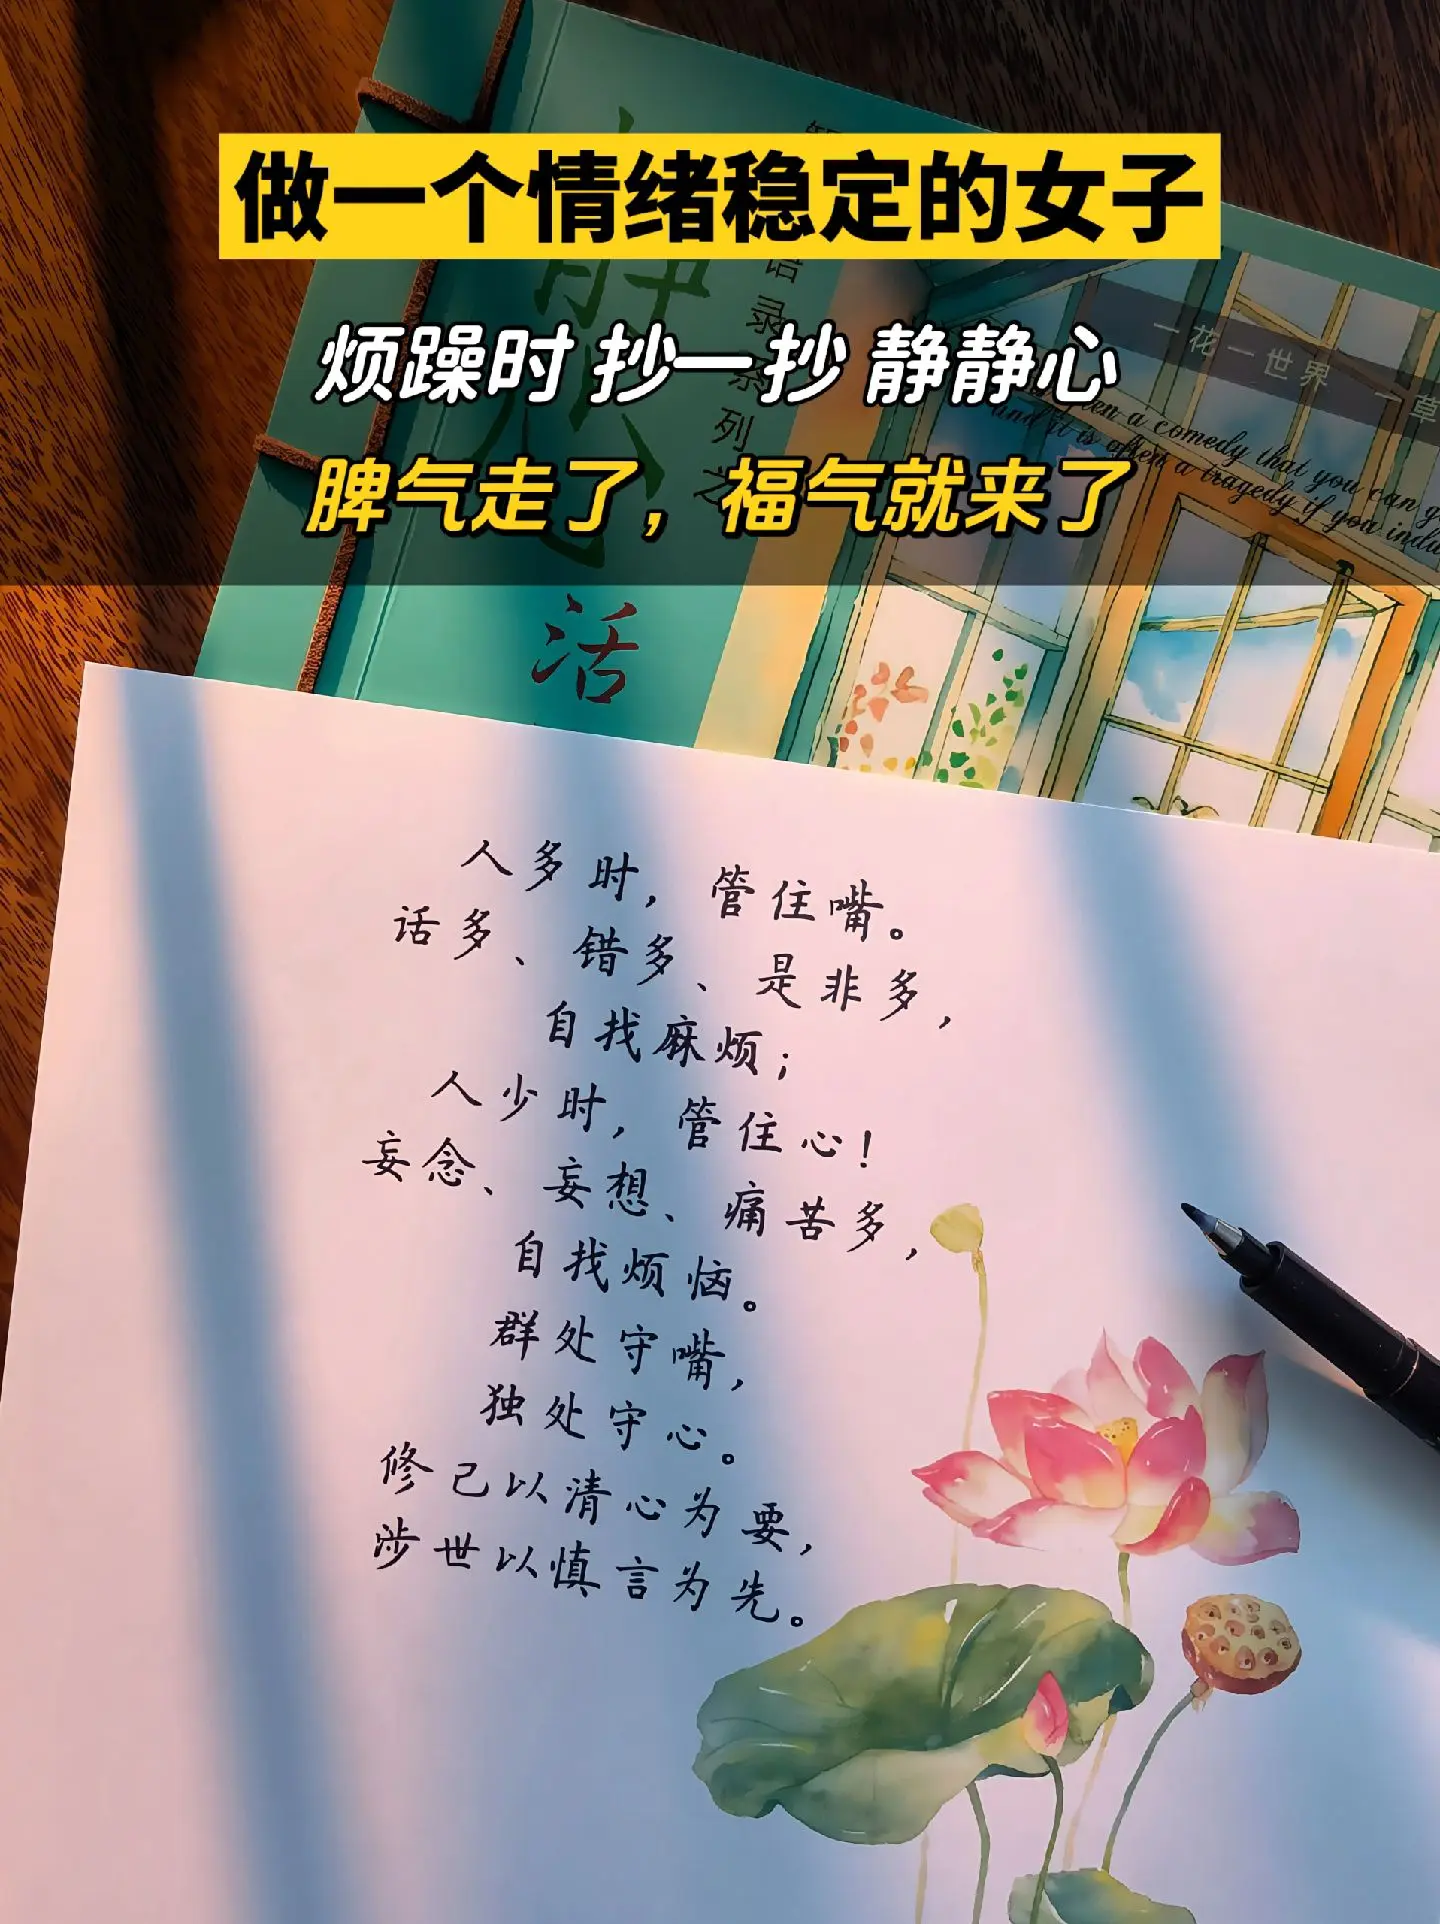 做一个情绪稳定的女子
烦躁时 抄一抄 静静心
脾气走了，福气就来了
语录系列之
活
一花一世界 一草
a comedy that you can
and it is often a tragedy if you indu
人多时，管住嘴。
话多、错多、是非多，
自找麻烦；
人少时，管住心！
妄念、妄想、痛苦多，
自找烦恼。
群处守嘴，
独处守心。
修己以清心为要，
涉世以慎言为先。